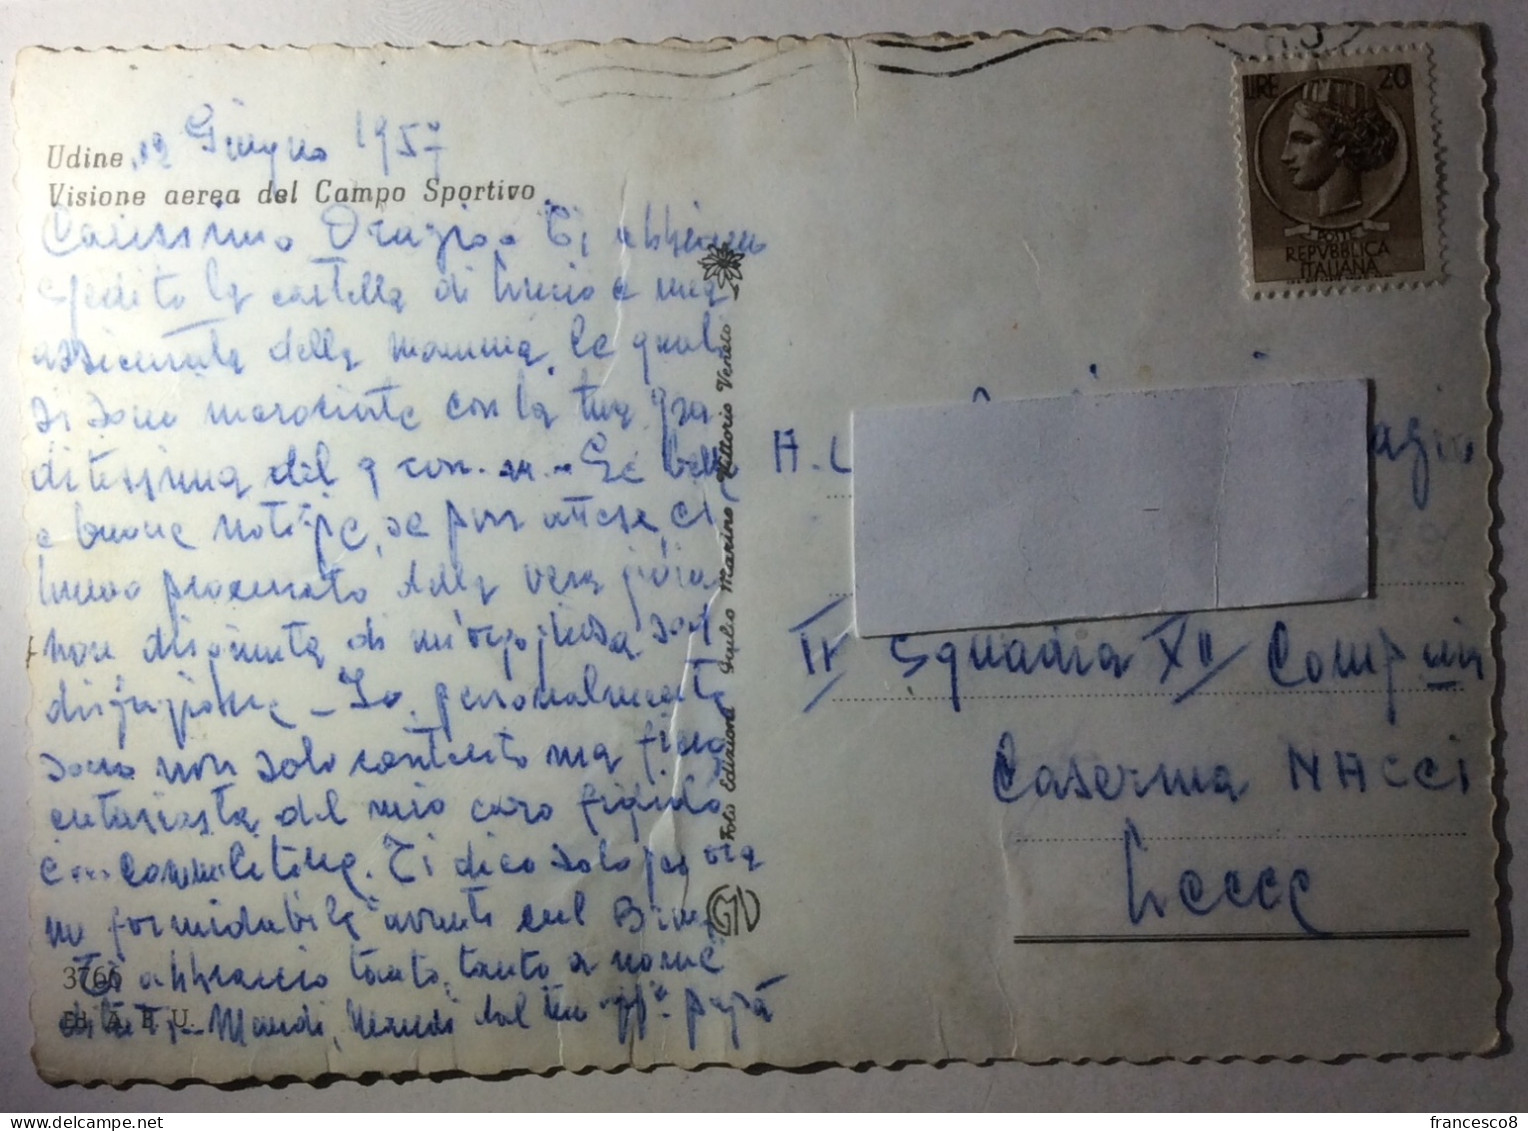 Udine, 12 Giugno 1957
Visione aerea del Campo Sportivo
Carissimo Orazio. Ti abbiamo
spedito la cartella di Lucio e una
assicurata della mamma, le quali
si sono incrociate con la tua gra
ditissima del 9 corr. m. - Le belle
e buone notizie, se pur attese, ci
hanno procurato della vera gioia
non disgiunta di orgogliosa sod
disfazione - Io personalmente
sono non solo contento ma fiero
entusiasta del mio caro figliolo
Commilitone. Ti dico solo per ora
formidabile avanti
Ti abbraccio tanto, tanto a nome
di tutti - Mandi, Mandi dal tuo aff.mo papà
3766
Foto Edizioni Giulio Marino Vittorio Veneto
LIRE 20
POSTE
REPVBBLICA
ITALIANA
A.
II Squadra XII Compagnia
Caserma NACCI
Lecce
francesco8